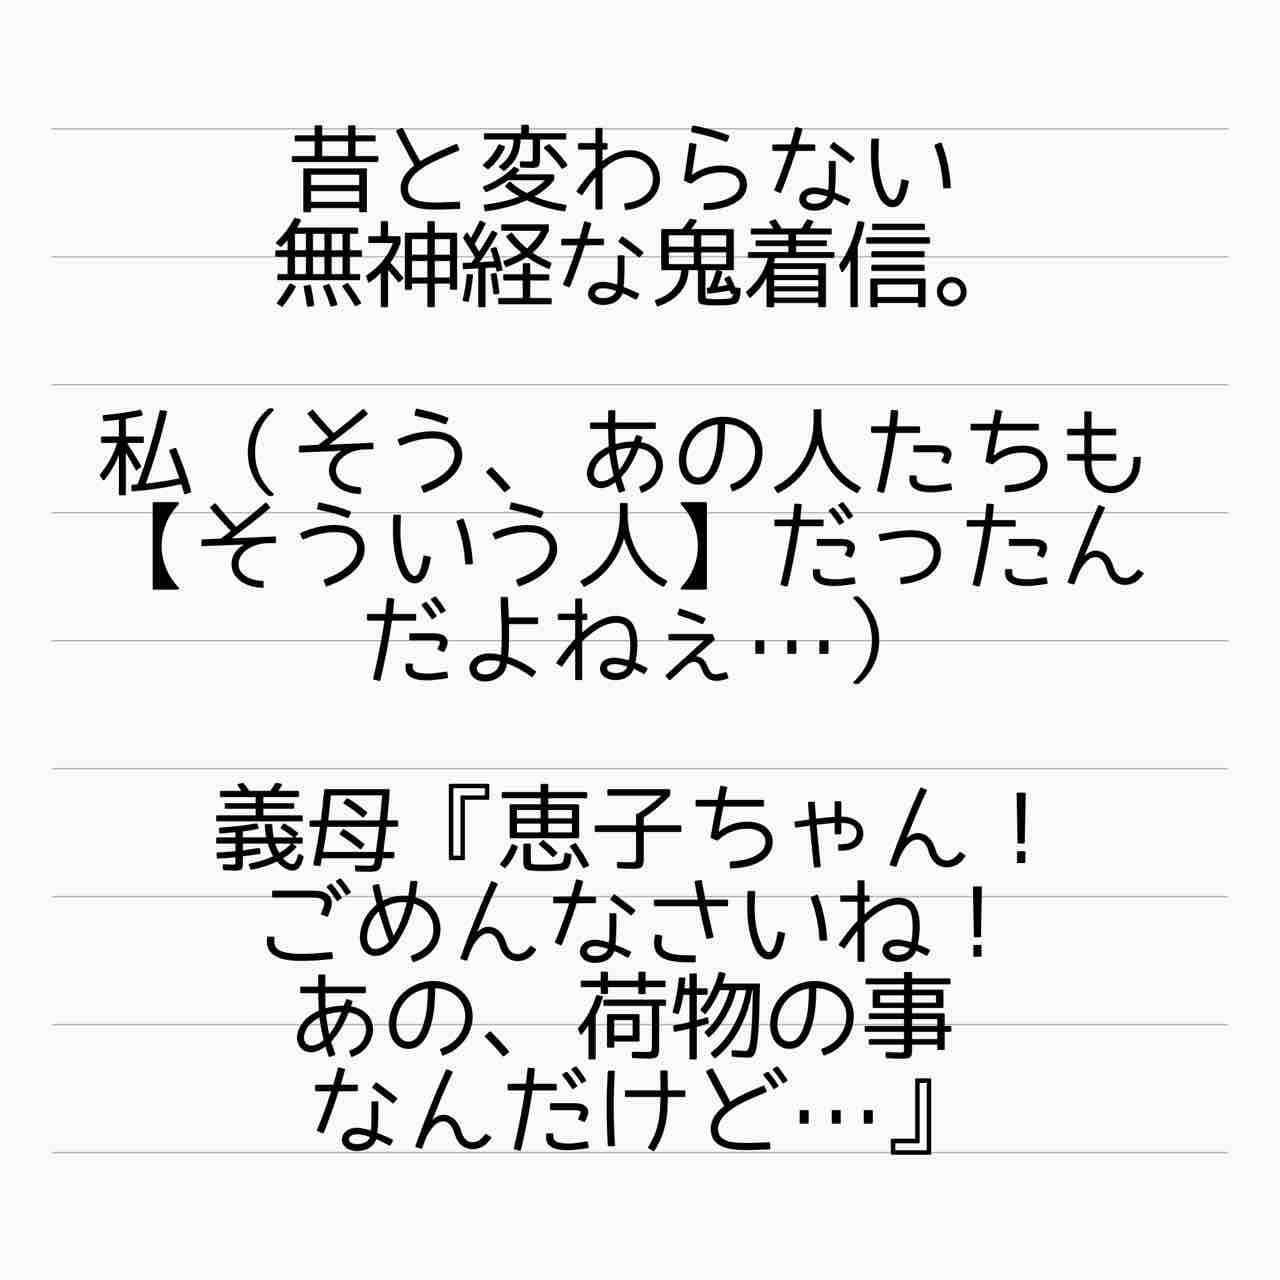 昔と変わらない
無神経な鬼着信。
私（そう、あの人たちも
【そういう人】だったん
だよねぇ…）
義母『恵子ちゃん！
ごめんなさいね！
あの、荷物の事
なんだけど…』